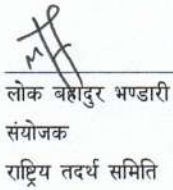 लोक बहादुर भण्डारी
संयोजक
राष्ट्रिय तदर्थ समिति